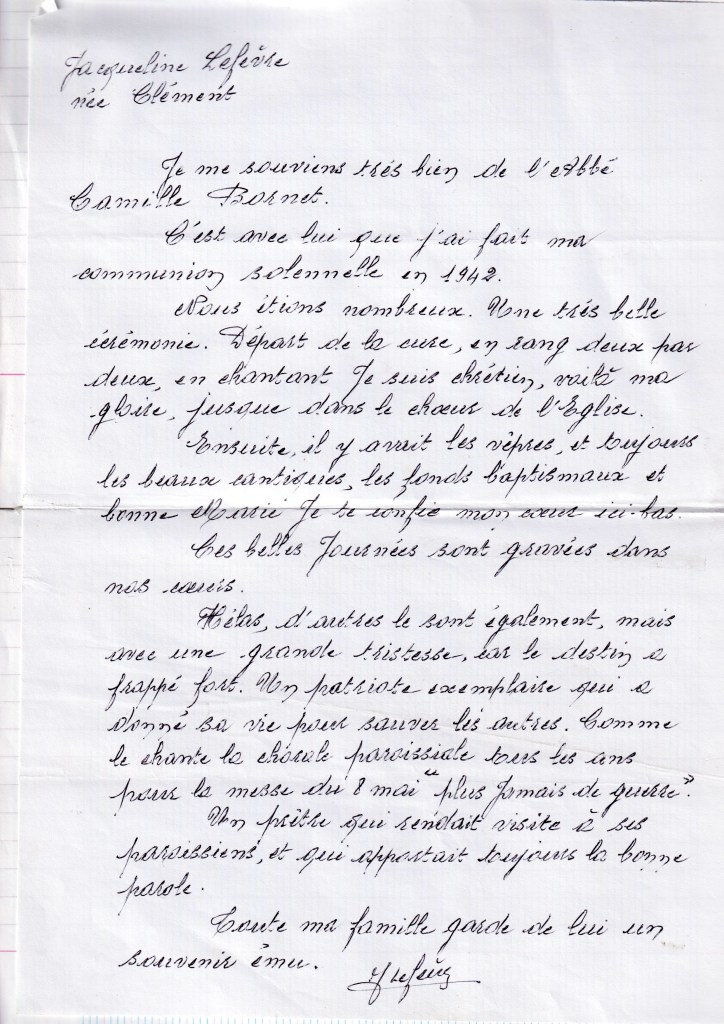 Jacqueline Lefèvre
née Clément
Je me souviens très bien de l'Abbé
Camille Bornet.
C'est avec lui que j'ai fait ma
communion solennelle en 1942.
Nous étions nombreux. Une très belle
cérémonie. Départ de la cure, en rang deux par
deux, en chantant Je suis chrétien, voilà ma
gloire, jusque dans le chœur de l'Eglise.
Ensuite, il y avait les vêpres, et toujours
les beaux cantiques, les fonds baptismaux et
bonne Marie Je te confie mon cœur ici-bas.
Ces belles Journées sont gravées dans
nos cœurs.
Hélas, d'autres le sont également, mais
avec une grande tristesse, car le destin a
frappé fort. Un patriote exemplaire qui a
donné sa vie pour sauver les autres. Comme
le chante la chorale paroissiale tous les ans
pour la messe du 8 mai "plus Jamais de guerre".
Un prêtre qui rendait visite à ses
paroissiens, et qui apportait toujours la bonne
parole.
Toute ma famille garde de lui un
souvenir ému.
J Lefèvre